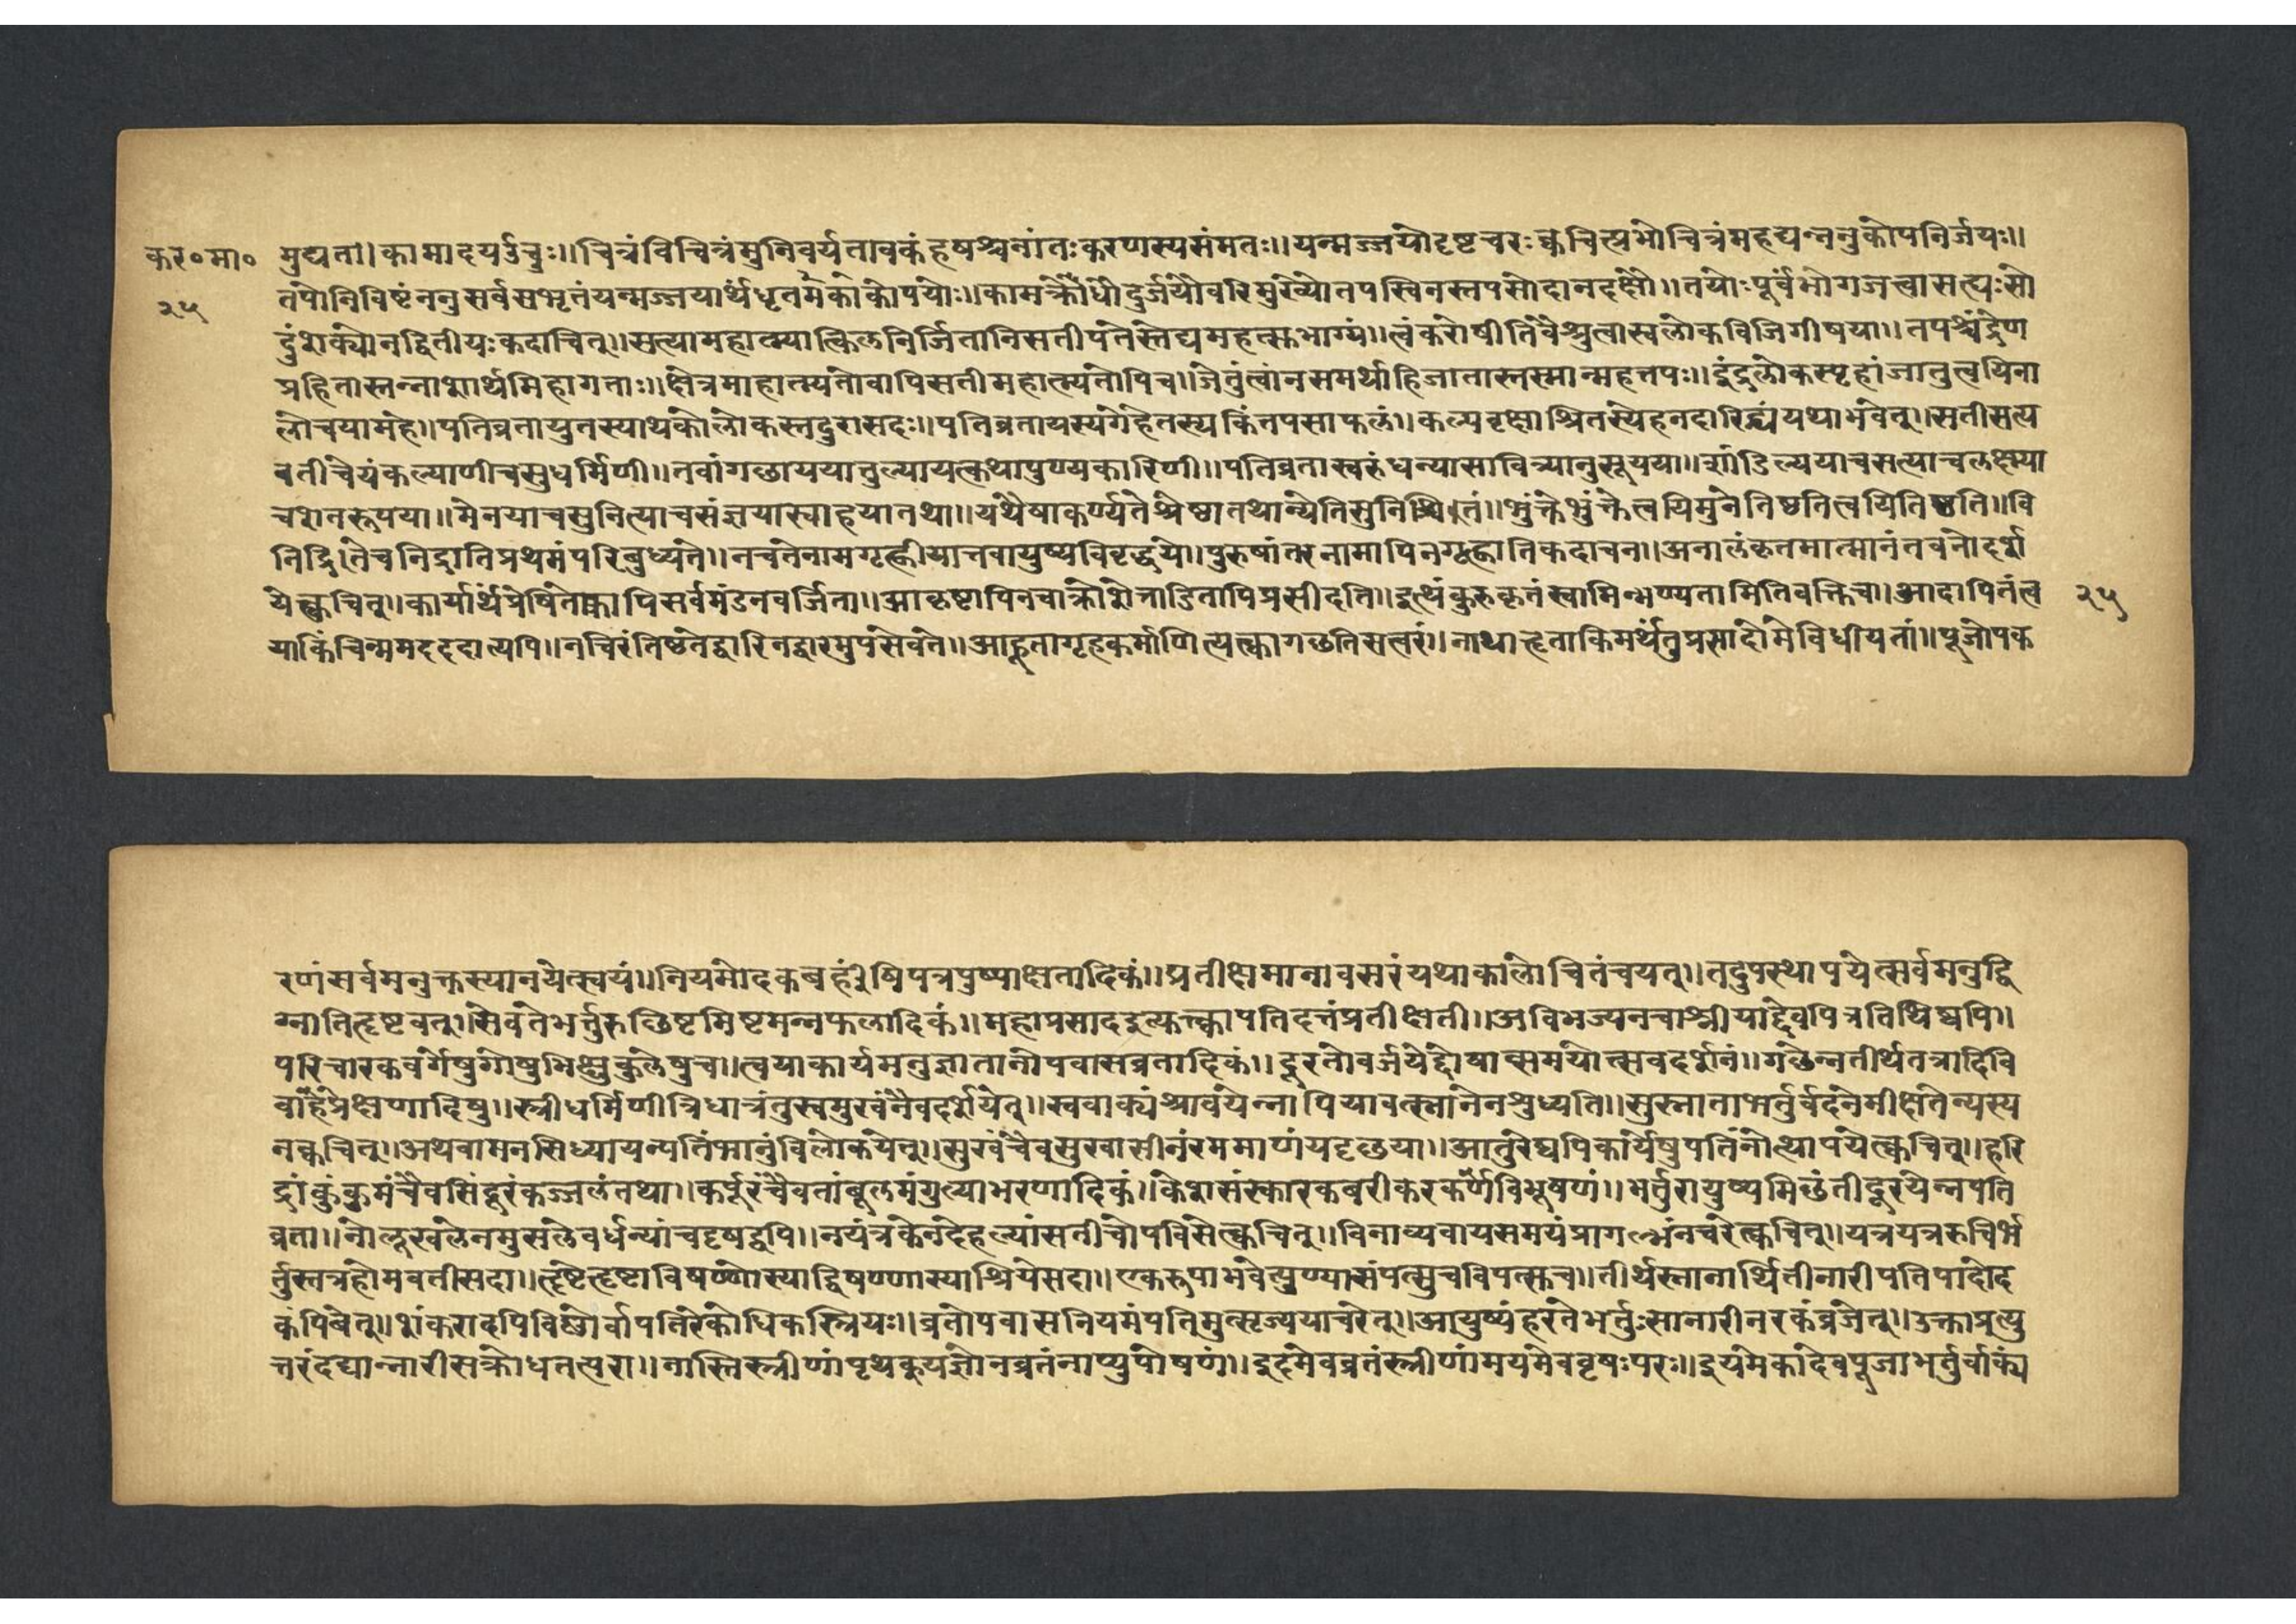 कर०मा० मुद्यता।।कामादयऊचुः।।चित्रंविचित्रंमुनिवर्यतावकंहषश्चनांतःकरणस्यसंमतः।।यन्मज्जयोदृष्टचरःक्वचित्प्रभोचित्रंमहद्यन्ननुकोपनिर्जयः।।
२५ तपोनिविष्टंननुसर्वसभृतंयन्मज्जयार्थंधृतमेकोकोपयोः।।कामक्रोधोदुर्जयोवरिमुख्योतपस्विनस्तपसोदानदक्षौ।।तयोःपूर्वंभोगजत्त्वासत्प्यःसो
ढुंशक्योनद्वितीयःकदाचित्।।सत्यामहात्म्यात्किलनिर्जितानिसतीपतेस्तेद्यमहत्सभाग्यं।।त्वंकरोषीतिवैश्रुत्वास्वलोकविजिगीषया।।तपश्चेंद्रेण
प्रहितास्तन्नाशार्थमिहागताः।।क्षेत्रमाहात्म्यतोवापिसतीमहात्म्यतोपिच।।जेतुंत्वांनसमर्थाहिजातास्तस्मान्महत्तपः।।इंद्रलोकस्पृहांजातुत्वयिना
लोचयामहे।।पतिव्रतायुतस्याथकोलोकस्तदुरासदः।।पतिव्रतायस्यगेहेतस्यकिंतपसाफलं।।कल्पवृक्षाश्रितस्येहनदारिद्र्यंयथाभवेत्।।सतीसत्य
वतीचेयंकल्याणीचसुधर्मिणी।।तवांगछाययातुल्यायत्कथापुण्यकारिणी।।पतिव्रतास्वरुंधन्यासावित्र्यानुसूयया।।शांडिल्ययाचसत्याचलक्ष्म्या
चशतरूपया।।मेनयाचसुनित्याचसंज्ञयास्वाहयातथा।।यथैषाकर्ण्यतेश्रेष्ठातथान्येतिसुनिश्चितं।।भुंक्तेभुंक्तेत्वयिमुनेतिष्ठतित्वयितिष्ठति।।वि
निद्रितेचनिद्रातिप्रथमंपरिबुध्यते।।नचतेनामगृह्णीयात्तवायुष्यविवृद्धये।।पुरुषांतरनामापिनगृह्णातिकदाचन।।अनालंकृतमात्मानंतवनोदर्श
येत्क्वचित्।।कार्यार्थंप्रेषितोक्वापिसर्वमंडनवर्जिता।।आकृष्टापिनचाक्रोशेत्ताडितापिप्रसीदति।।इत्थंकुरुकृतंस्वामिन्भण्यतामितिवक्तिचा।आदापितंत्व २५
याकिंचिन्ममददत्यपि।।नचिरंतिष्ठतेद्वारिनद्वारमुपसेवते।।आहूतागृहकर्माणित्यक्त्वागछतिसत्वरं।।नाथाहृताकिमर्थंतुप्रसादोमेविधीयतां।।पूजोपक
रणंसर्वमनुक्तस्यानयेत्स्वयं।।नियमोदकबर्हींषिपत्रपुष्पाक्षतादिकं।।प्रतीक्षमानावसरंयथाकालोचितंचयत्।।तदुपस्थापयेत्सर्वमनुद्वि
ग्नातिहृष्टवत्।।सेवतेभर्तुरुछिष्टमिष्टमन्नफलादिकं।।महाप्रसादइत्युक्त्वापतिदत्तंप्रतीक्षती।।अविभज्यनचाश्नीयाद्देवपित्रतिथिष्वपि।।
परिचारकवर्गेषुगोषुभिक्षुकुलेषुच।।त्वयाकार्यमनुज्ञातानोपवासव्रतादिकं।।दूरतोवर्जयेद्दोषान्समयोत्सवदर्शनं।।गछेन्नतीर्थतत्रादिवि
वाहप्रेक्षणादिषु।।स्त्रीधर्मिणीत्रिधात्रंतुस्वमुखंनैवदर्शयेत्।।स्ववाक्यंश्रावयेन्नापियावत्स्नानेनशुध्यति।।सुस्नाताभर्तुर्वदनेमीक्षतेन्यस्य
नक्वचित्।।अथवामनसिध्यायन्पतिंभानुंविलोकयेत्।।सुखंचैवसुखासीनंरममाणंयदृछया।।आतुरेष्वपिकार्येषुपतिंनोत्थापयेत्क्वचित्।।हरि
द्रांकुंकुमंचैवसिंदूरंकज्जलंतथा।।कर्पूरंचैवतांबूलमंगुल्याभरणादिकं।।केशसंस्कारकबरीकरकर्णविभूषणं।।भर्तुरायुष्यमिछंतीदूरयेन्नपति
व्रता।।नोलूखलेनमुसलेवर्धन्यांचदृषद्वपि।।नयंत्रकेनदेहल्यांसतीचोपविसेत्क्वचित्।।विनाव्यवायसमयंप्रागल्भ्यंनचरेत्क्वचित्।।यत्रयत्ररुचिर्भ
र्तुस्तत्रहोमवतीसदा।।हृष्टेहृष्टाविषण्णेस्याद्विषण्णास्याप्रियेसदा।।एकरूपाभवेत्पुण्यासंपत्सुचविपत्सुच।।तीर्थस्नानार्थितीनारीपतिपादोद
कंपिबेत्।।शंकरादपिविष्णोर्वापतिरेकोधिकस्त्रियः।।व्रतोपवासनियमंपतिमुत्सृज्ययाचरेत्।।आयुष्यंहरतेभर्तुःसानारीनरकंव्रजेत्।।उक्ताप्रत्यु
त्तरंदद्यान्नारीसक्रोधतत्परा।।नास्तिस्त्रीणांपृथक्यज्ञोनव्रतंनाप्युपोषणं।।इदमेवव्रतंस्त्रीणामयमेववृषःपरः।।इयमेकादेवपूजाभर्तुर्वाक्यं